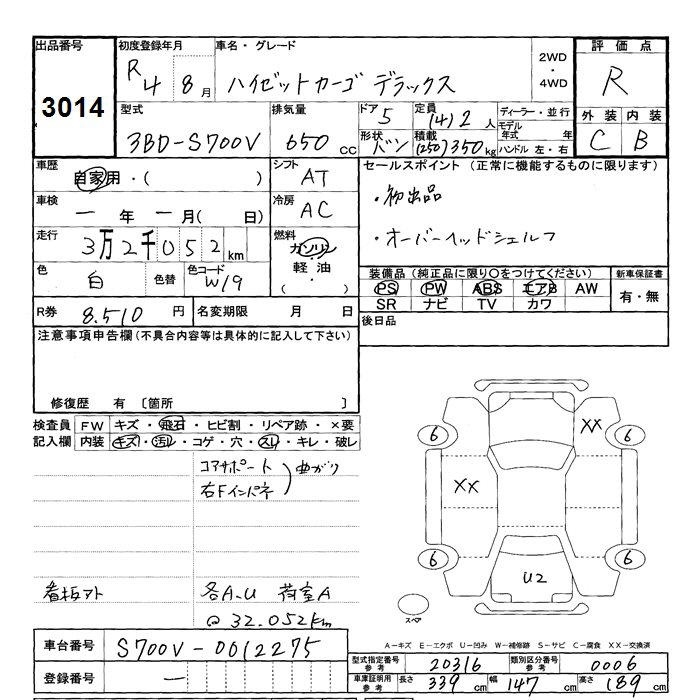 出品番号 初度登録年月 車名・グレード 2WD ・ 4WD 評価点
3014 R4 8月 ハイゼットカーゴ デラックス R
型式 排気量 ドア 5 定員 (4)2人 ディーラー・並行 外装 内装
3BD-S700V 650cc 形状 バン 積載 (250)350kg モデル年式 年 ハンドル 左・右 C B
車歴 自家用・( ) シフト AT セールスポイント (正常に機能するものに限ります)
車検 ー年ー月( 日) 冷房 AC ・初出品
走行 3万2千052km 燃料 ガソリン ・オーバーヘッドシェルフ
色 白 色替 色コード W19 軽油 ・( )
装備品(純正品に限り○をつけてください) 新車保証書
PS PW ABS エアB AW 有・無
SR ナビ TV カワ
R券 8.510円 名変期限 月 日 後日品
注意事項申告欄(不具合内容等は具体的に記入して下さい)
修復歴 有 〔箇所 〕
検査員 FW キズ・飛石・ヒビ割・リペア跡・×要
記入欄 内装 キズ・汚レ・コゲ・穴・スレ・キレ・破レ
コアサポート 曲がり
右Fインパネ
看板アト 各A.U 荷室A
@32.052km
XX
6 6
XX
6 6
U2
スペア
A-キズ E-エクボ U-凹み W-補修跡 S-サビ C-腐食 XX-交換済
車台番号 S700V-0012275
登録番号 ー
型式指定番号 参考 20316 類別区分番号 参考 0006
車庫証明用 参考 長さ 339cm 幅 147cm 高さ 189cm